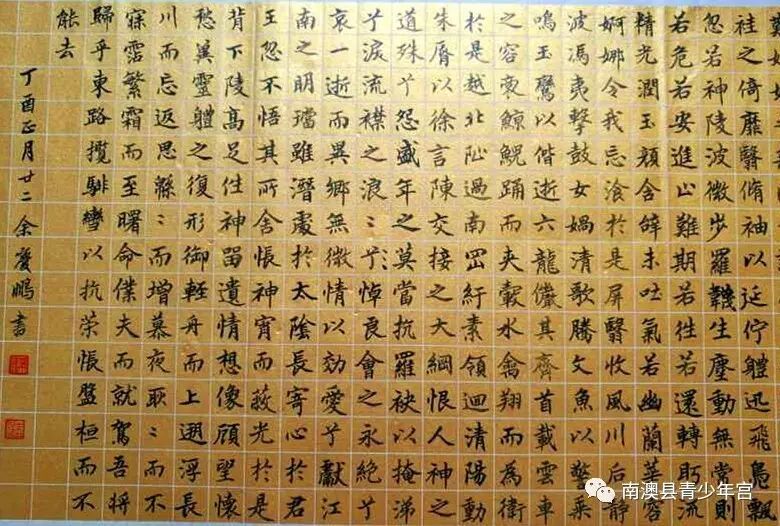 袿之倚靡翳脩袖以延佇體迅飛鳧飄
忽若神陵波微步羅韈生塵動無常則
若危若安進止難期若往若還轉眄流
精光潤玉顏含辭未吐氣若幽蘭華容
婀娜令我忘湌於是屏翳收風川后静
波馮夷擊鼓女媧清歌騰文魚以警乘
鳴玉鸞以偕逝六龍儼其齊首載雲車
之容裔鯨鯢踊而夾轂水禽翔而為衛
於是越北沚過南岡紆素領迴清陽動
朱脣以徐言陳交接之大綱恨人神之
道殊兮怨盛年之莫當抗羅袂以掩涕
兮淚流襟之浪〻兮悼良會之永絕兮
哀一逝而異鄉無微情以効愛兮獻江
南之明璫雖潛處於太陰長寄心於君
王忽不悟其所舍悵神宵而蔽光於是
背下陵高足往神留遺情想像顧望懷
愁冀靈體之復形御輕舟而上遡浮長
川而忘返思緜〻而增慕夜耿〻而不
寐霑繁霜而至曙命僕夫而就駕吾將
歸乎東路攬騑轡以抗策悵盤桓而不
能去
丁酉正月廿二余慶鵬書
南澳县青少年宫